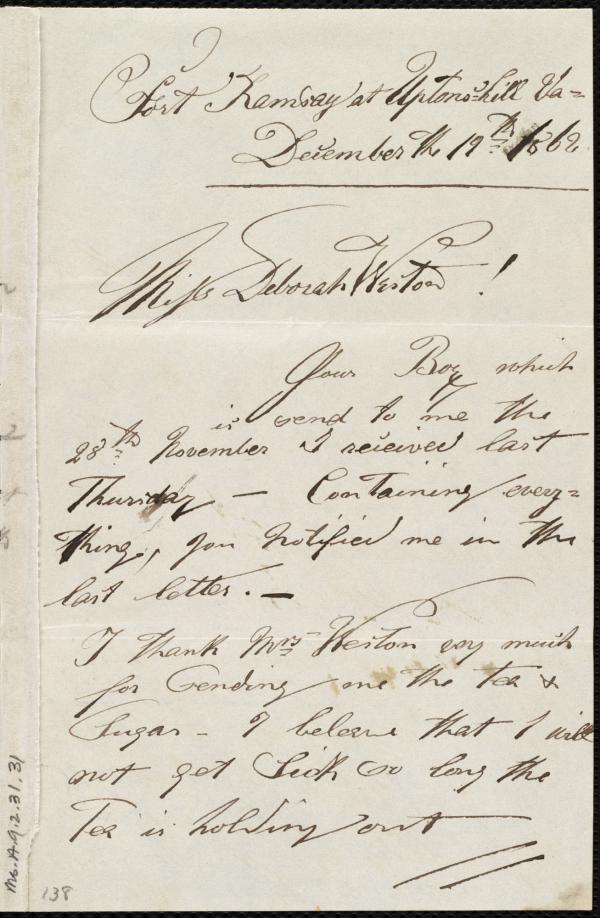 Fort Ramsay at Uptons-hill Va=
December the 19th 1862
Miss Deborah Weston!
Your Box which
is send to me the
28th November I received last
Thursday — Containing every=
thing, you notified me in the
last letter. —
I thank Mrs Weston very much
for Sending me the Tea &
Sugar - I beleave that I will
not get Sick so long the
Tea is holding out
Ms.A.9.2.31,31
138